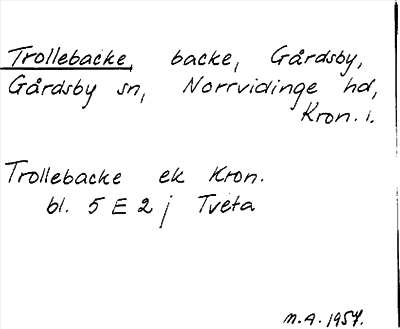 Trollebacke, backe, Gårdsby,
Gårdsby sn, Norrvidinge hd,
Kron. l.
Trollebacke ek Kron.
bl. 5 E 2 j Tveta
M.A. 1957.